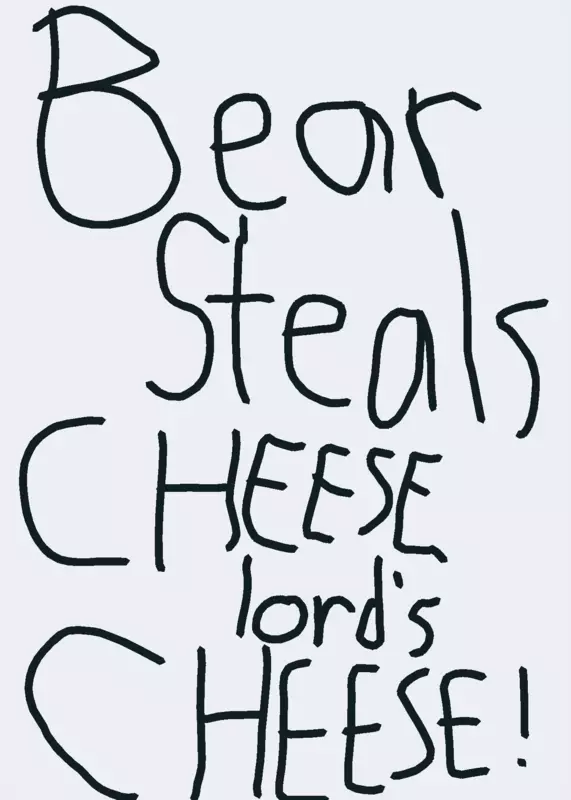 Bear
Steals
CHEESE
lord's
CHEESE!